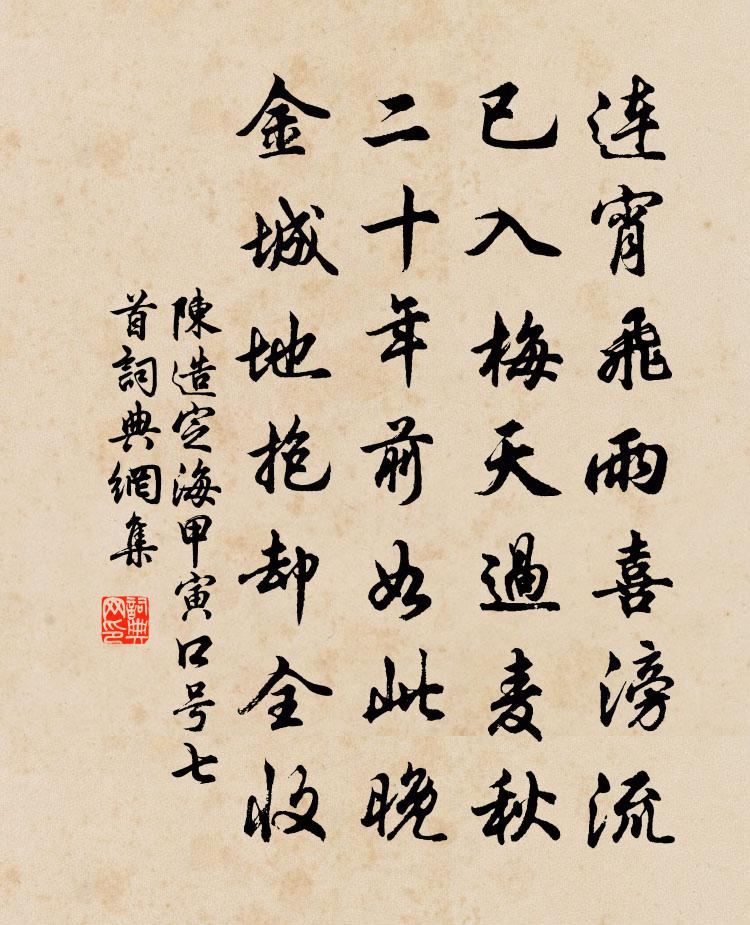 連宵飛雨喜滂流
已入梅天過麦秋
二十年前如此晚
金城地抱却全收
陳造定海甲寅口号七
首詞典網集
詞典网印